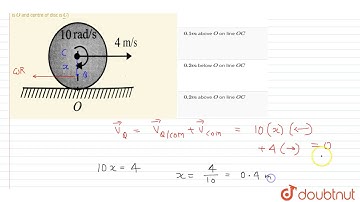 is O and centre of disc is C)
10 rad/s
4 m/s
C
x
Q
ωR
O
0.1m above O on line OC
0.2m below O on line OC
0.2m above O on line OC
V⃗_Q = V⃗_Q/com + V⃗_com = 10(x)(←)
+ 4(→) = 0
10x = 4
x = 4/10 = 0.4 m
doubtnut